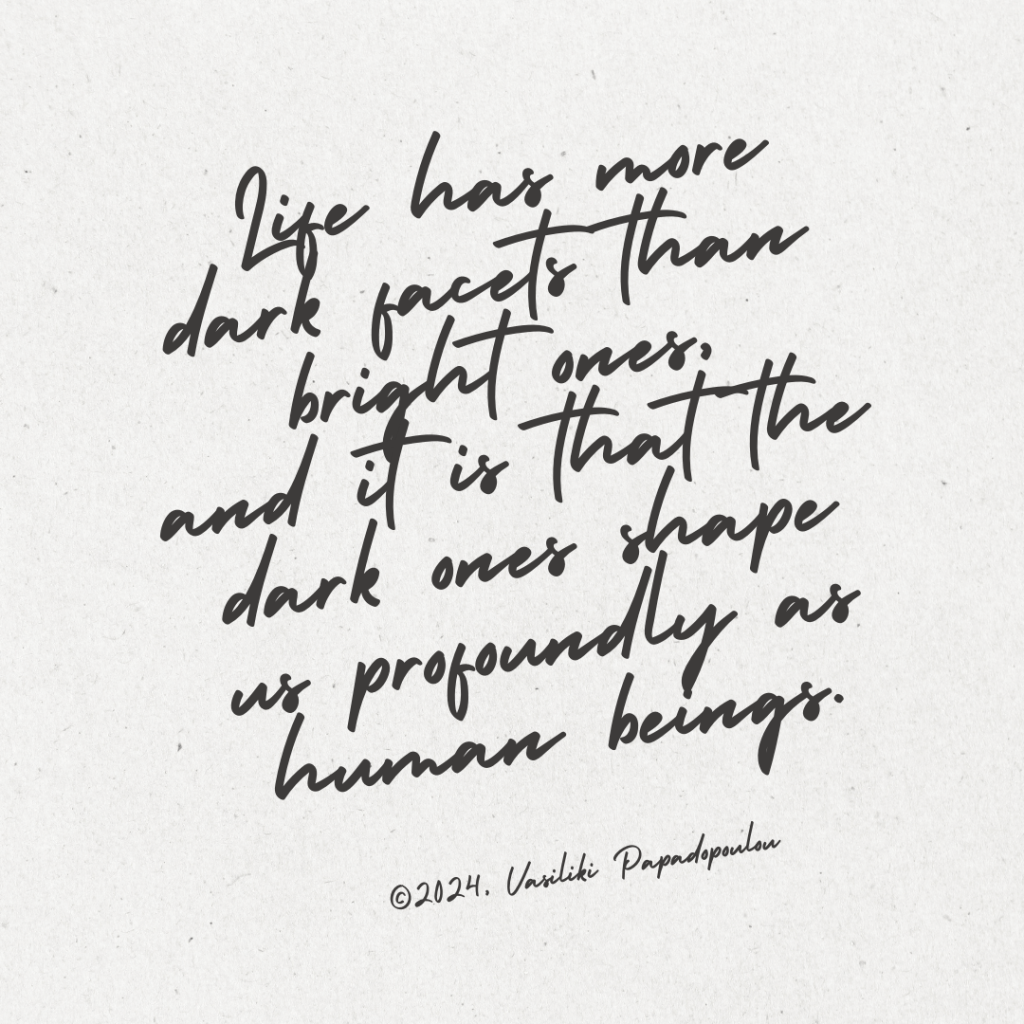 Life has more
dark facets than
bright ones,
and it is that the
dark ones shape
us profoundly as
human beings.
©2024. Vasiliki Papadopoulou